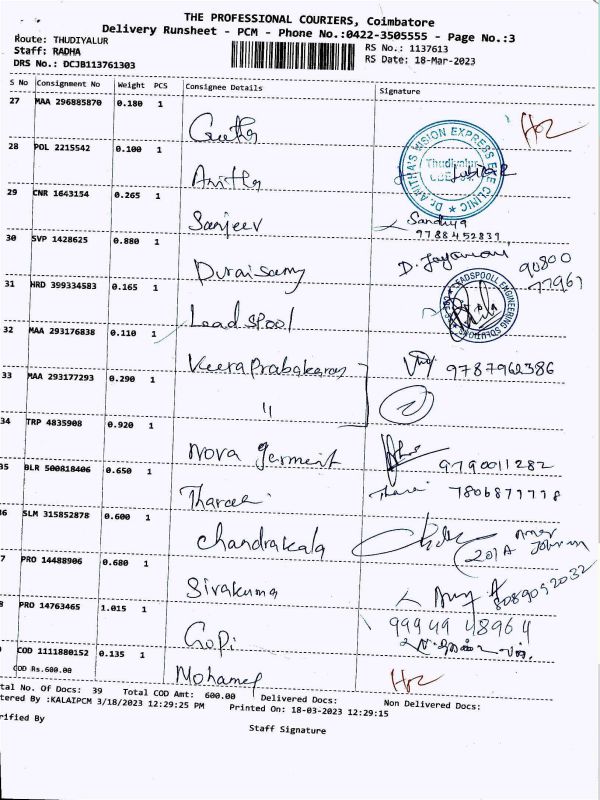 THE PROFESSIONAL COURIERS, Coimbatore
Delivery Runsheet - PCM - Phone No.:0422-3505555 - Page No.:3
Route: THUDIYALUR
RS No.: 1137613
Staff: RADHA
RS Date: 18-Mar-2023
DRS No.: DCJB113761303
S No Consignment No Weight PCS Consignee Details Signature
27 MAA 296885870 0.180 1
Geetha
28 POL 2215542 0.100 1
Dr.ANITHA'S VISION EXPRESS EYE CLINIC
Thudiyalur
Anitha
29 CNR 1643154 0.265 1
Sanjeev Sandhya
9788452831
30 SVP 1428625 0.880 1
Duraisamy D. Jayamani 90800
77961
31 HRD 399334583 0.165 1
Lead Spool
LEADSPOOLL ENGINEERING SOLUTIONS
32 MAA 293176838 0.110 1
Veeraprabakaran 9787962386
33 MAA 293177293 0.290 1
"
34 TRP 4835908 0.920 1
Nova Germent 9790011282
35 BLR 500818406 0.650 1
7806877778
36 SLM 315852878 0.600 1
Chandrakala
201A
7 PRO 14488906 0.680 1
Sivakuma 8089092032
8 PRO 14763465 1.015 1
Gopi 99949 48964
9 COD 1111880152 0.135 1
COD Rs.600.00
Mohamed
tal No. Of Docs: 39 Total COD Amt: 600.00 Delivered Docs: Non Delivered Docs:
tered By :KALAIPCM 3/18/2023 12:29:25 PM Printed On: 18-03-2023 12:29:15
rified By
Staff Signature